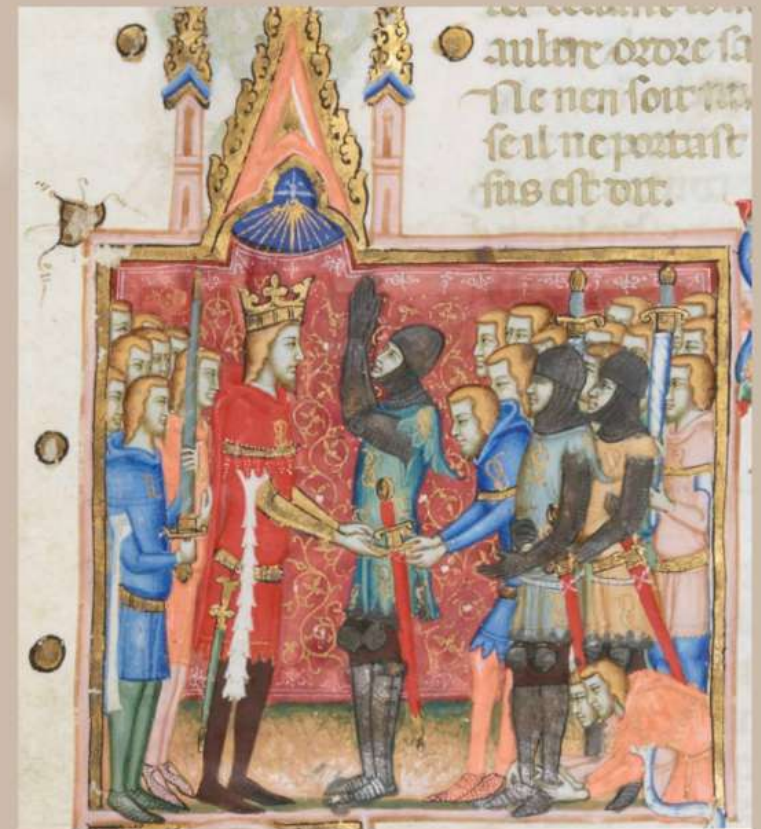 aulture ordre sa
Ne nen soit
se il ne portast
sus est dit.